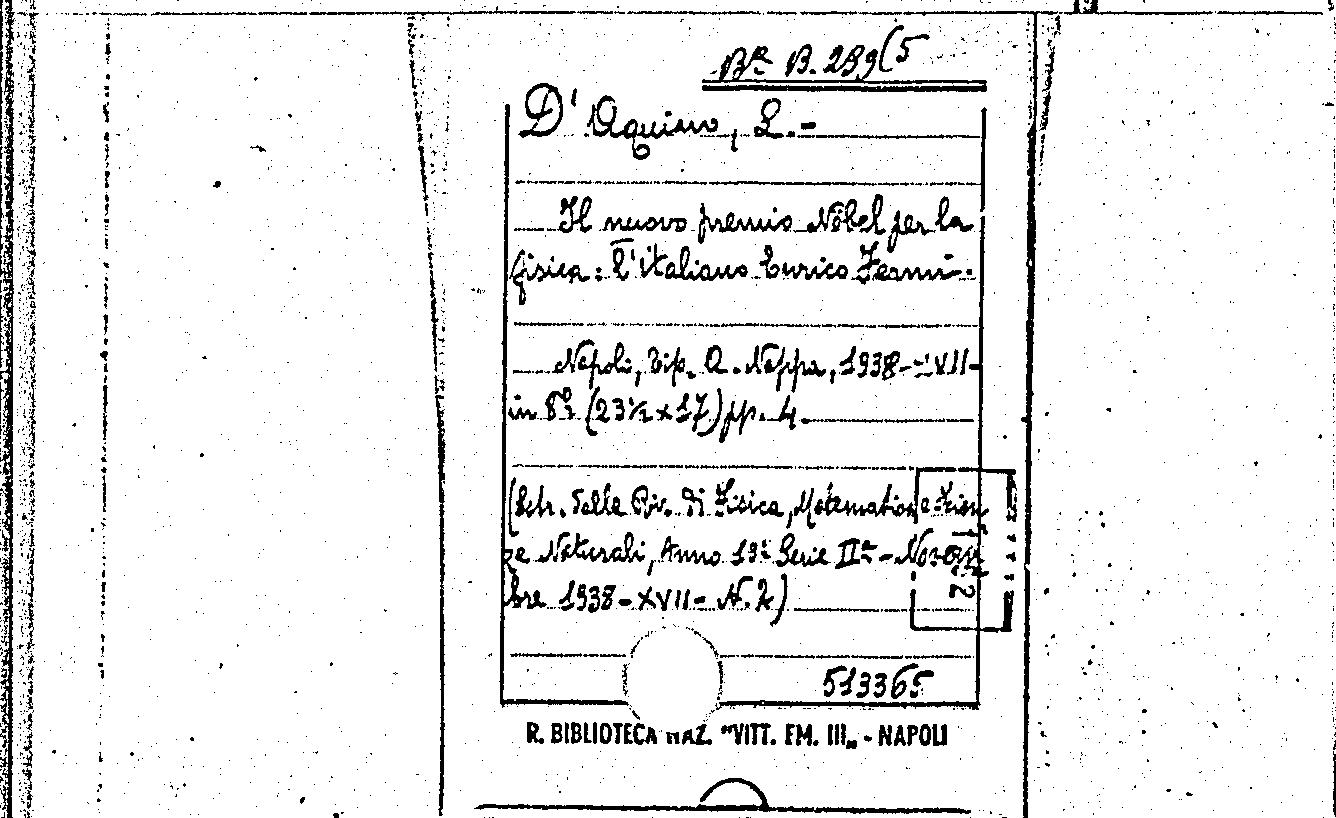 Br B. 289(5
D'Aquino, L.-
Il nuovo premio Nobel per la
fisica: l'italiano Enrico Fermi.
Napoli, Tip. A. Nappa, 1938-XVII-
in 8º (23½ x 17) pp. 4.
(Estr. dalla Riv. di Fisica, Matematica e Scien
ze Naturali, Anno 13º Serie IIª - Novem
bre 1938-XVII- N. 2)
513365
R. BIBLIOTECA NAZ. "VITT. EM. III„ - NAPOLI